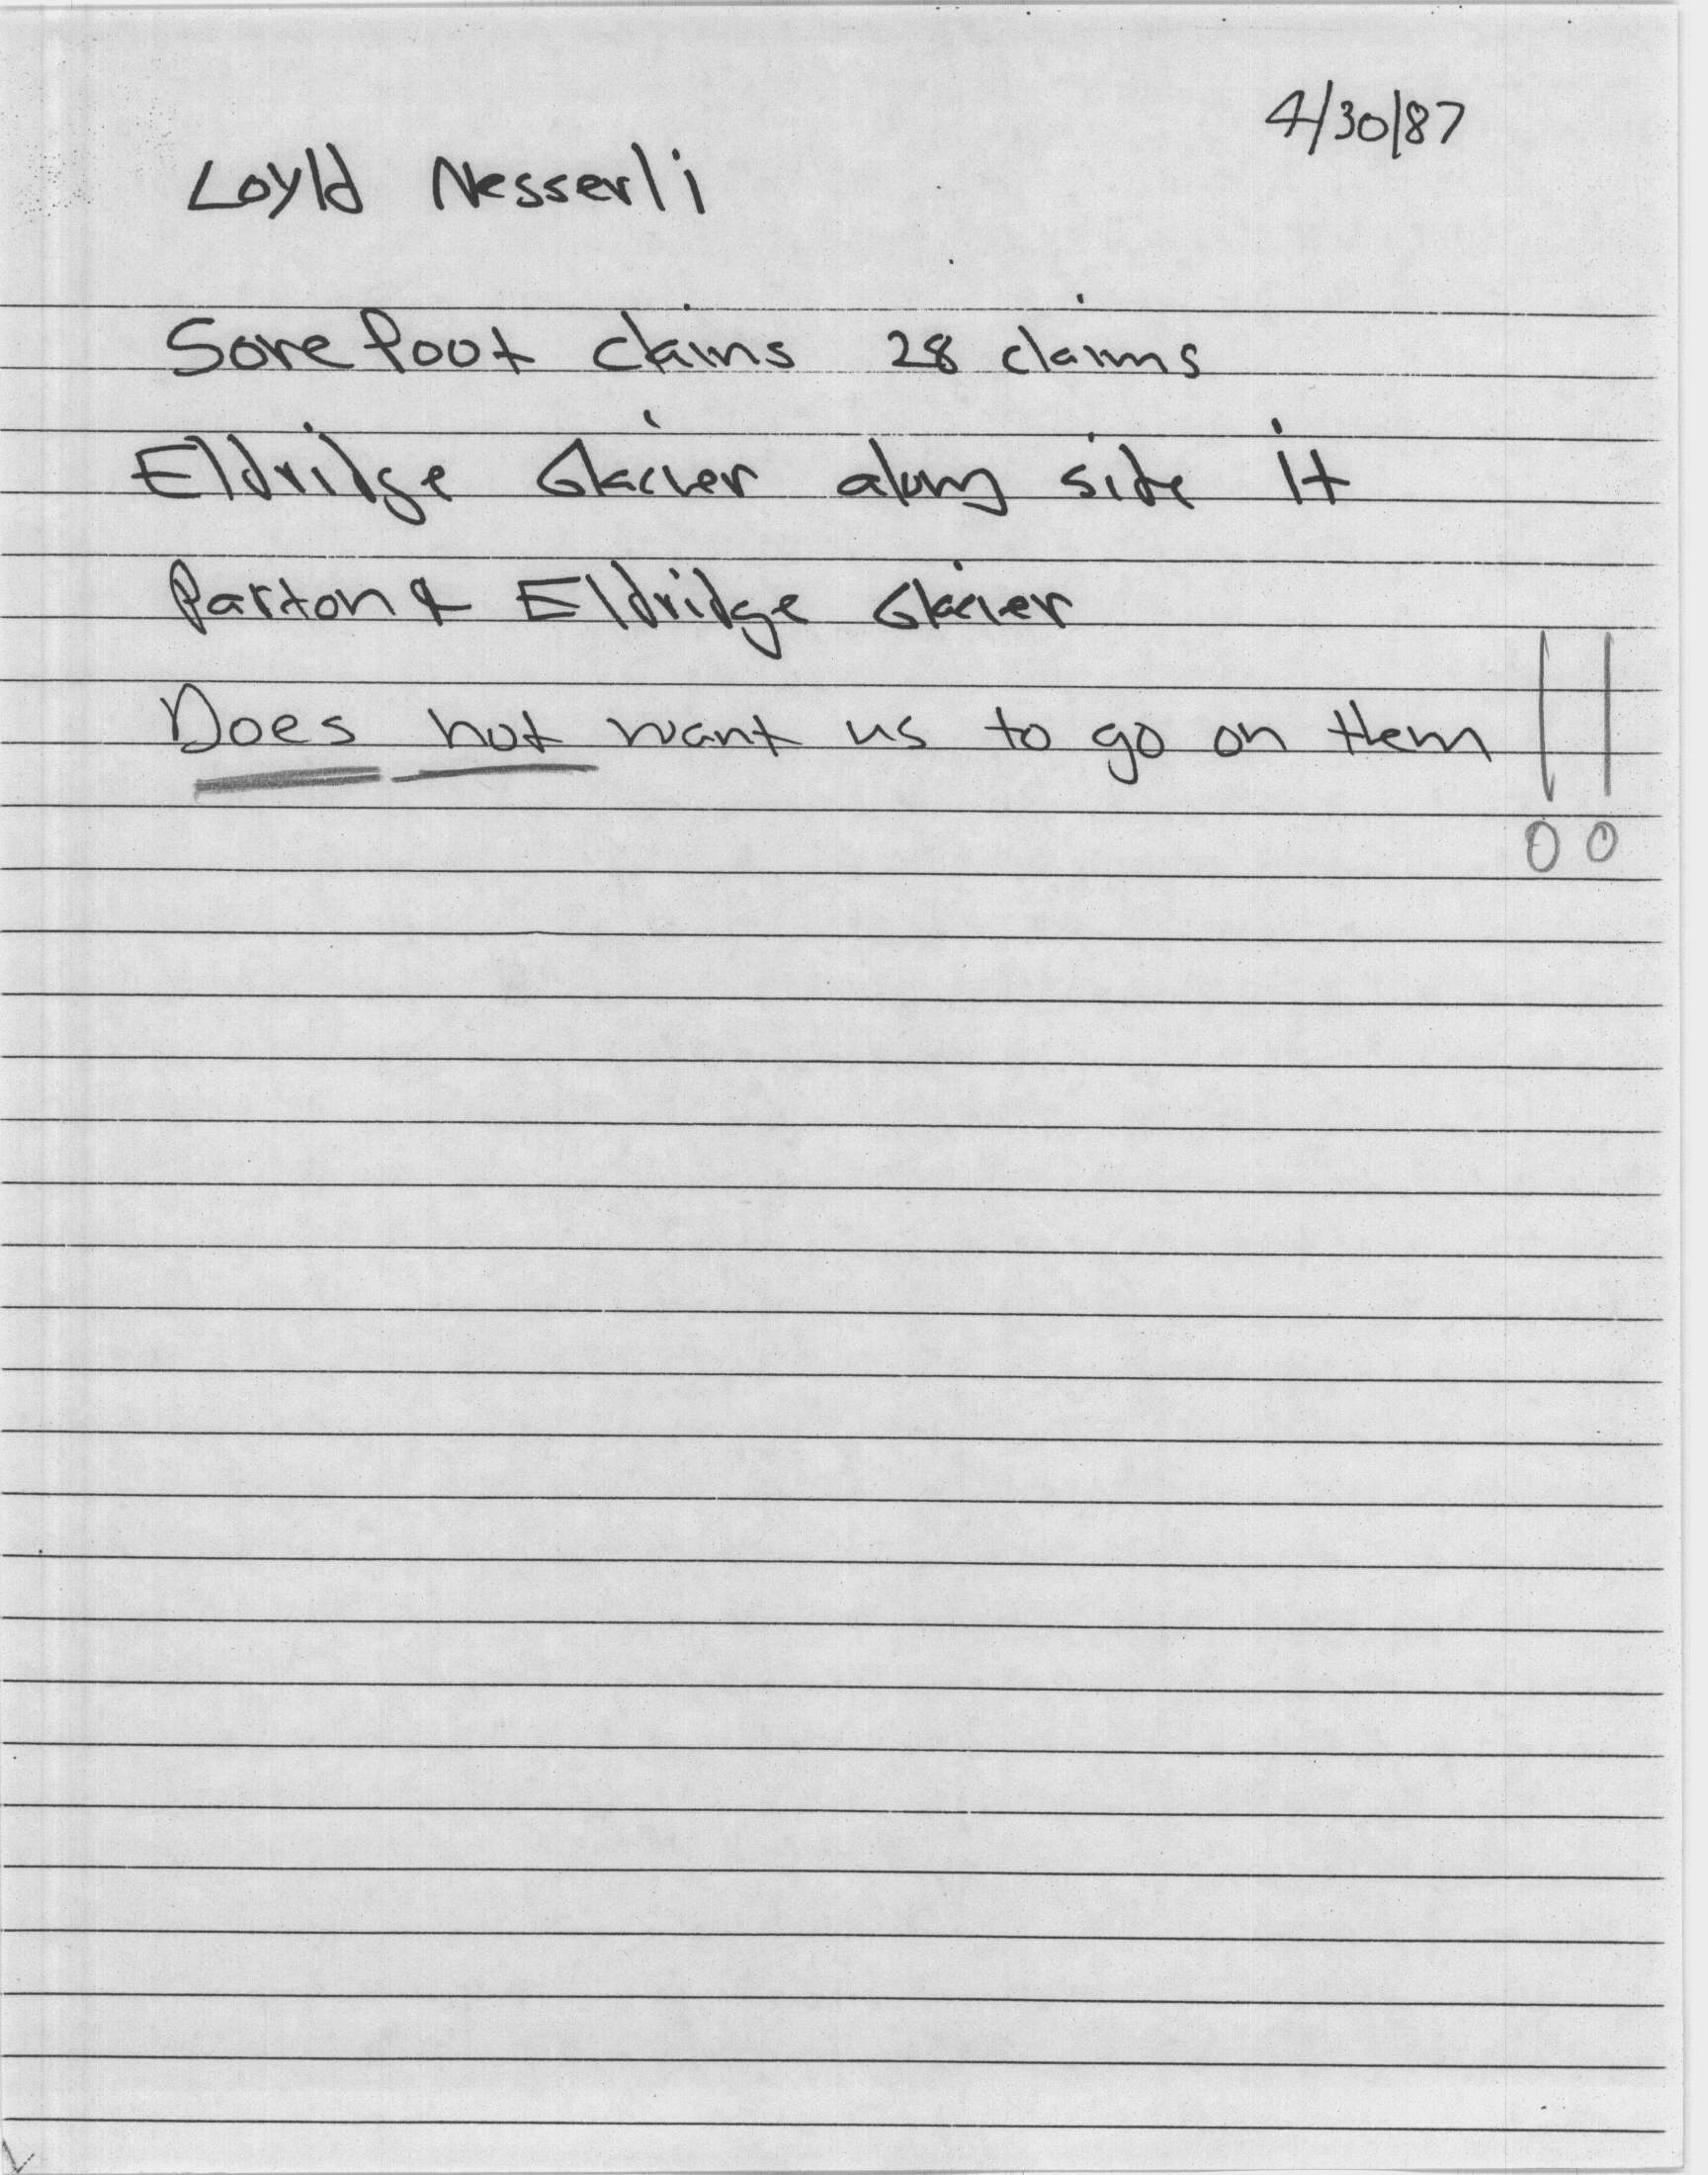 4/30/87
Loyld Nesserli
Sore foot claims 28 claims
Eldridge Glacier along side it
Parton & Eldridge Glacier
Does not want us to go on them !!